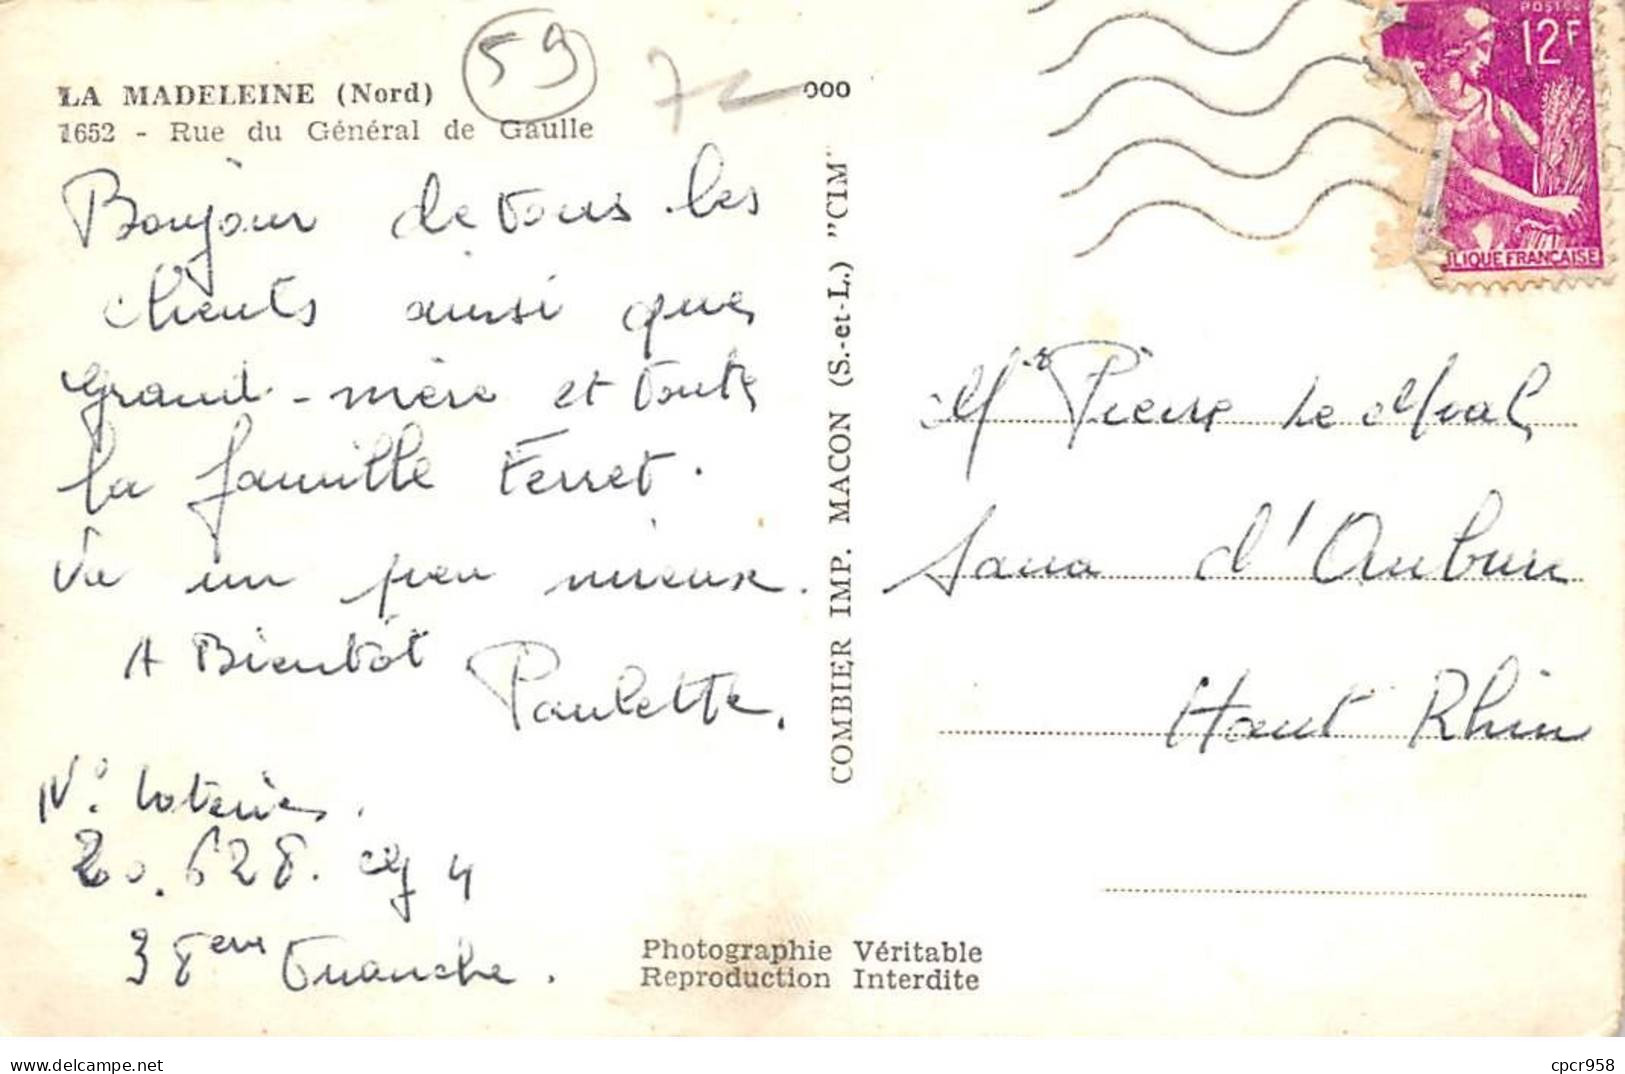 LA MADELEINE (Nord)
1652 - Rue du Général de Gaulle
59
000
POSTES
12F
LIQUE FRANÇAISE
Bonjour de tous les
clients ainsi que
grand-mère et toute
la famille Ferret.
Va un peu mieux.
A Bientôt
Paulette.
N° loterie.
20.628. 4
38eme Tranche.
COMBIER IMP. MACON (S.-et-L.) "CIM"
Mr Pierre
Sana d'Aubure
Haut Rhin
Photographie Véritable
Reproduction Interdite
delcampe.net
cpcr958